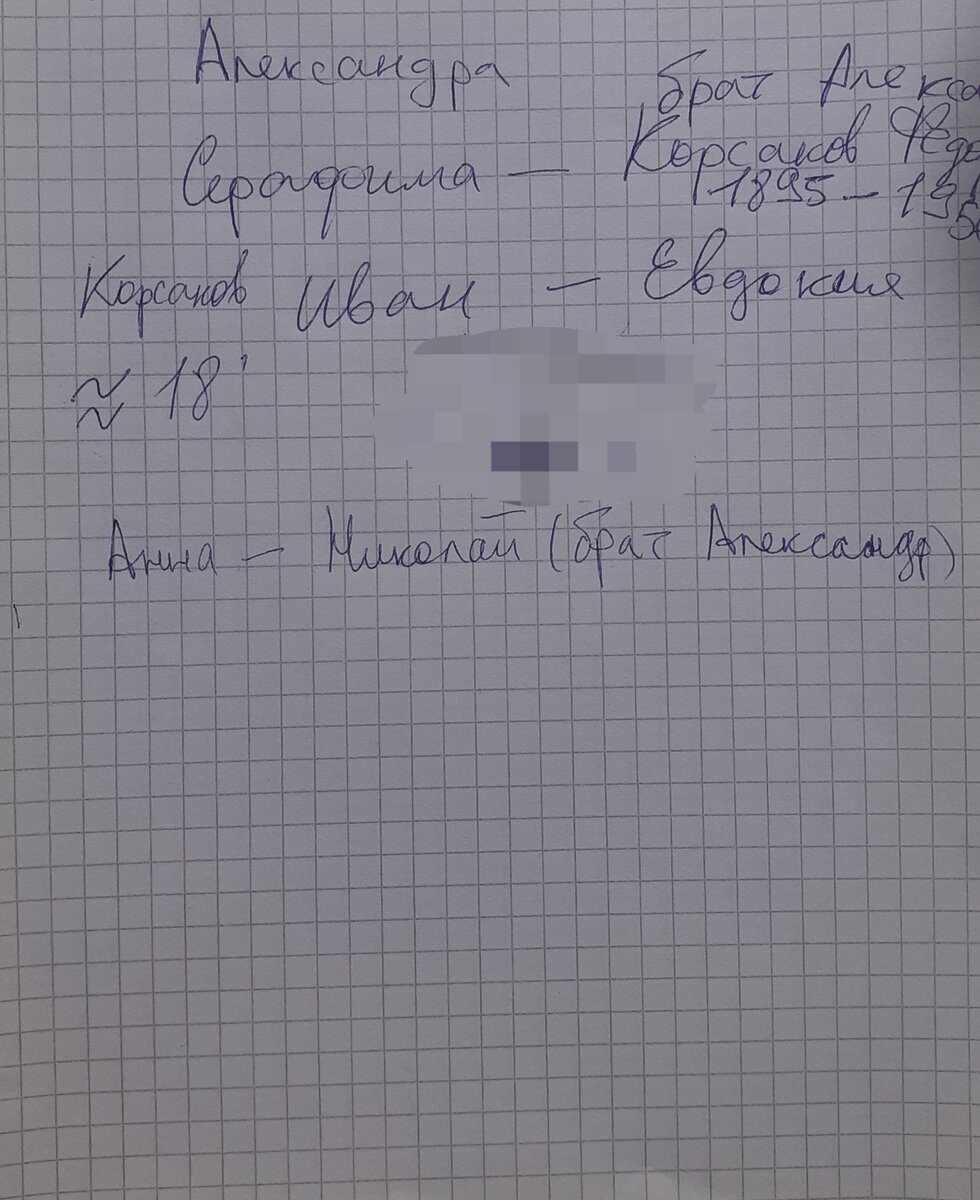 Александра
брат Алекса
Серафима — Корсаков Федо
1895 — 19
Корсаков Иван — Евдокия
≈ 18
Анна — Николай (брат Александр)